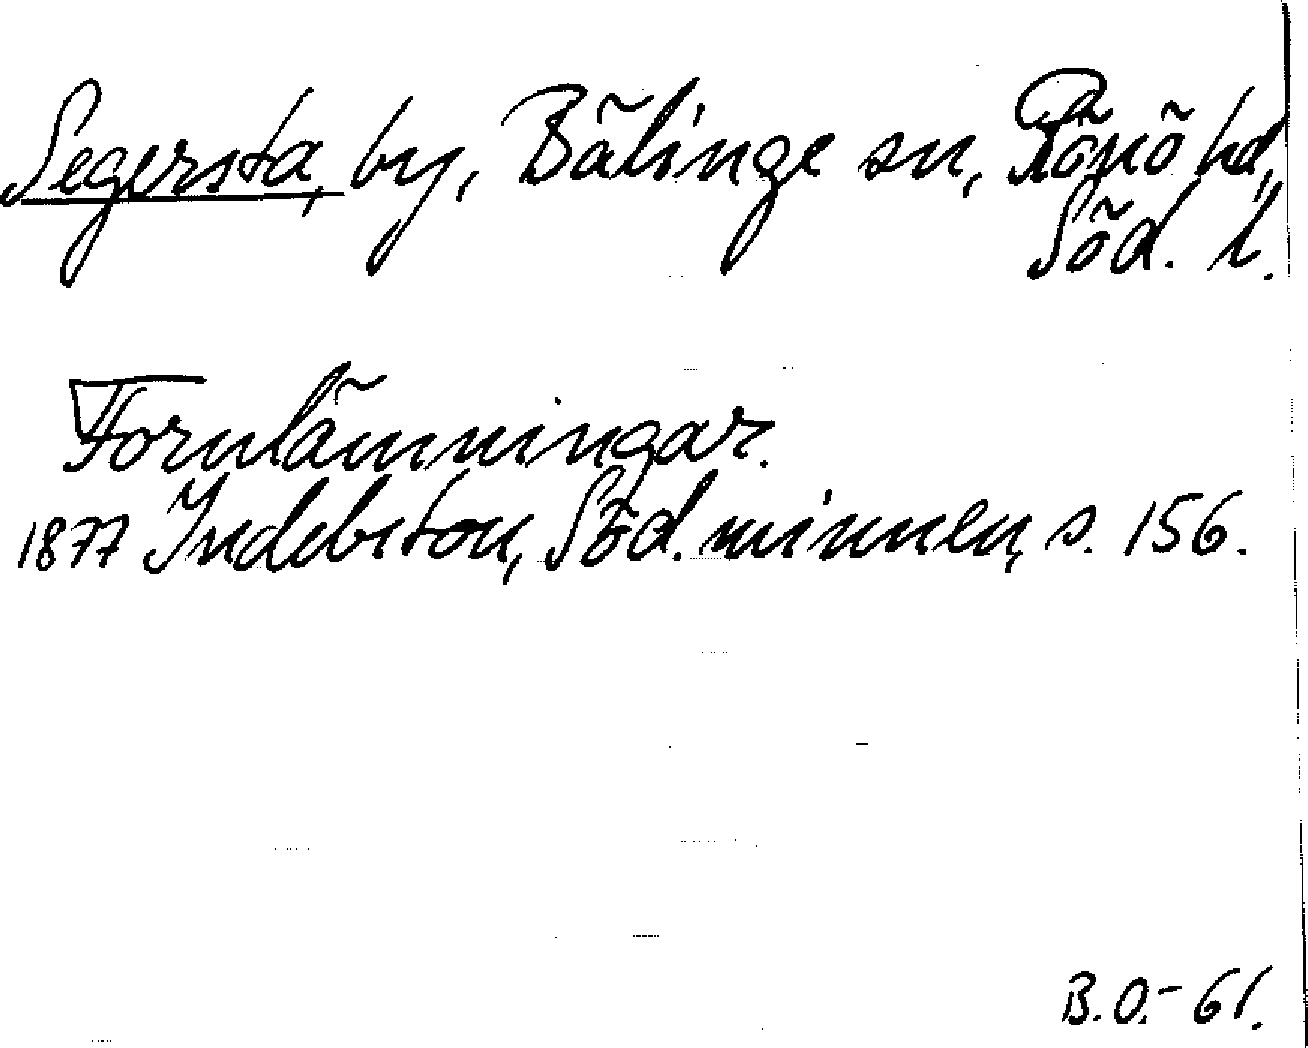 Segersta, by, Bälinge sn, Rönö hd,
Söd. l.
Fornlämningar.
1877 Indebetou, Söd. minnen, s. 156.
B.O.-61.